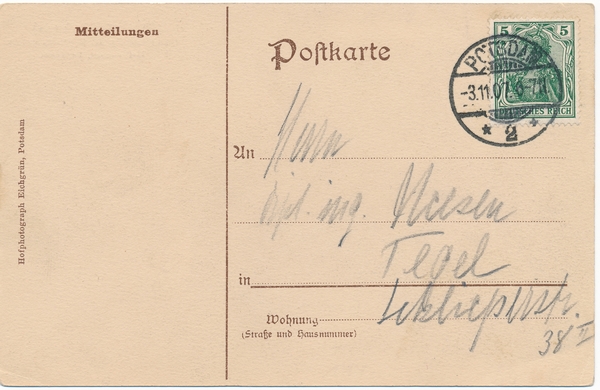 Mitteilungen
Postkarte
5 5
DEUTSCHES REICH
POTSDAM
-3.11.07. 6-7N
* 2 *
An Herrn
Dipl. ing. Niesen
in Tegel
Wohnung Schlieperstr.
(Straße und Hausnummer)
38 II
Hofphotograph Eichgrün, Potsdam